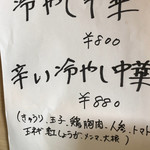 冷やし中華
¥800
辛い冷やし中華
¥880
(きゅうり、玉子、鶏胸肉、人参、トマト
紅しょうが、メンマ、大根)